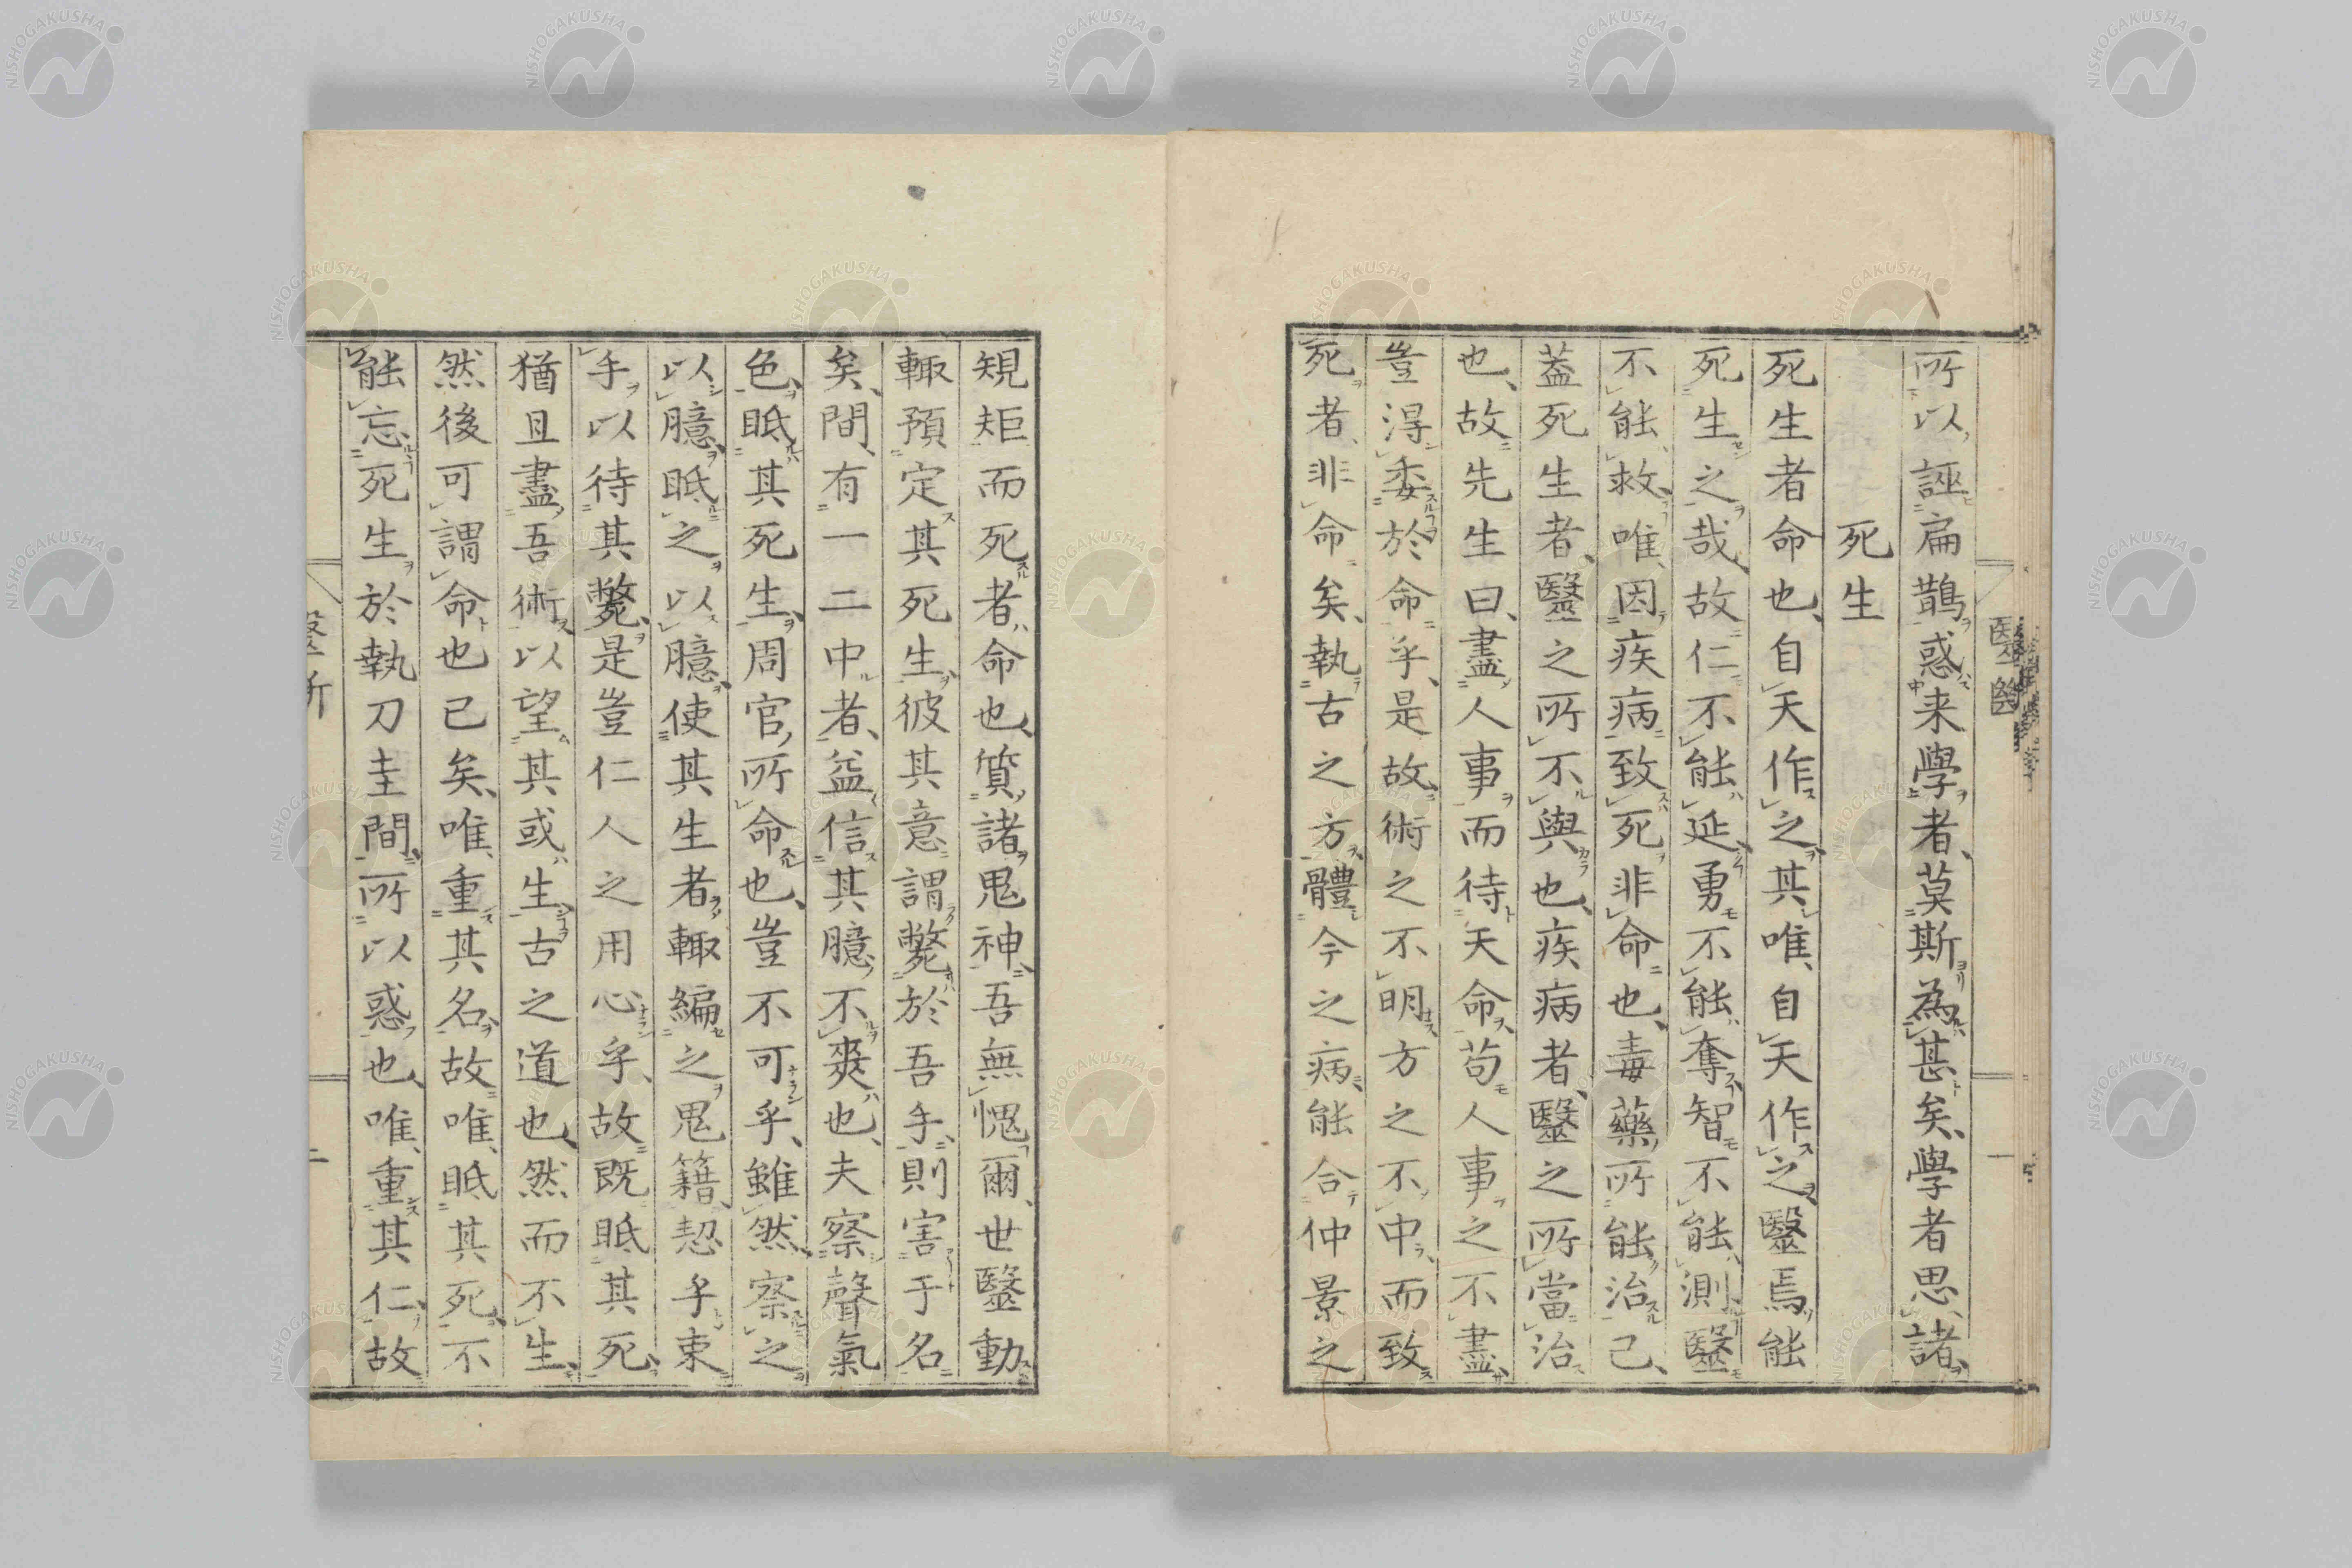 所以誣扁鵲惑来學者莫斯為甚矣學者思諸
死生
死生者命也自天作之其唯自天作之毉焉能
死生之哉故仁不能延勇不能奪智不能測毉
不能救唯因疾病致死非命也毒藥所能治已
蓋死生者毉之所不與也疾病者毉之所當治
也故先生曰盡人事而待天命苟人事之不盡
豈得委於命乎是故術之不明方之不中而致
死者非命矣執古之方體今之病能合仲景之
規矩而死者命也質諸鬼神吾無愧爾世毉動
輙預定其死生彼其意謂斃於吾手則害于名
矣間有一二中者益信其臆不爽也夫察聲氣
色眂其死生周官所命也豈不可乎雖然察之
以臆眂之以臆使其生者輙編之鬼籍恝乎束
手以待其斃是豈仁人之用心乎故既眂其死
猶且盡吾術以望其或生古之道也然而不生
然後可謂命也已矣唯重其名故唯眂其死不
能忘死生於執刀圭間所以惑也唯重其仁故